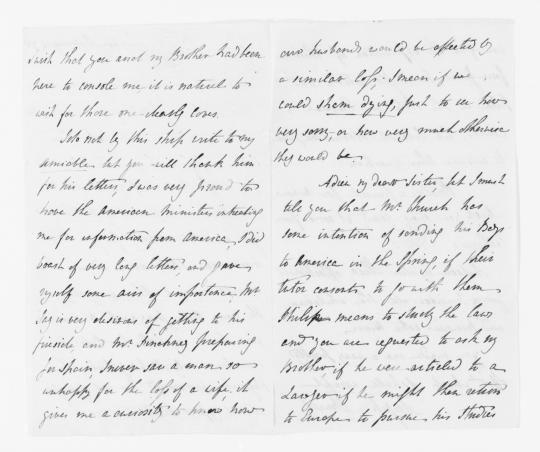 I wish that you and my Brother had been
here to console me it is natural to
wish for those one dearly loves.
I do not by this ship write to my
amiable but you will thank him
for his letters, I was very proud to
have the American Ministers intreating
me for information from America, I did
boast of very long letters, and gave
myself some airs of importance, Mr
Jay is very desirous of getting to his
fireside and Mr. Pinckney preparing
for Spain, I never saw a man so
unhappy for the loss of a wife, it
gives me a curiosity to know how
our husbands would be affected by
a similar loss, I mean if we
could sham dying, just to see how
very sorry, or how very much otherwise
they would be.
Adieu my dear Sister but I must
tell you that Mr. Church has
some intention of sending his Boys
to America in the Spring if their
tutor consents to go with them
Philip means to study the law
and you are requested to ask my
Brother if he were articled to a
Lawyer if he might then return
to Europe to pursue his Studies